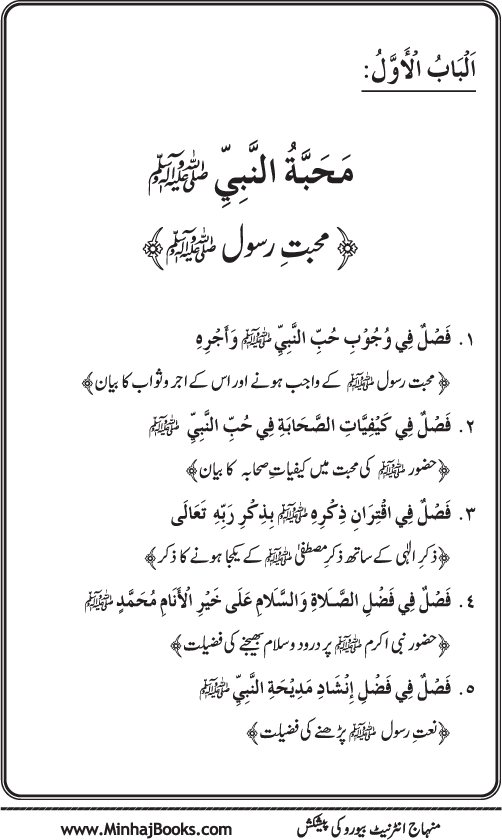 اَلْبَابُ الْأَوَّلُ:
مَحَبَّةُ النَّبِيِّ ﷺ
﴿ محبتِ رسول ﷺ ﴾
١. فَصْلٌ فِي وُجُوْبِ حُبِّ النَّبِيِّ ﷺ وَأَجْرِهِ
﴿محبت رسول ﷺ کے واجب ہونے اور اس کے اجر و ثواب کا بیان﴾
٢. فَصْلٌ فِي کَيْفِيَّاتِ الصَّحَابَةِ فِي حُبِّ النَّبِيِّ ﷺ
﴿حضور ﷺ کی محبت میں کیفیاتِ صحابہ کا بیان﴾
٣. فَصْلٌ فِي اقْتِرَانِ ذِکْرِهِ ﷺ بِذِکْرِ رَبِّهِ تَعَالَی
﴿ذکر الٰہی کے ساتھ ذکرِ مصطفیٰ ﷺ کے یکجا ہونے کا ذکر﴾
٤. فَصْلٌ فِي فَضْلِ الصَّلَاةِ وَالسَّلَامِ عَلَی خَيْرِ الْأَنَامِ مُحَمَّدٍ ﷺ
﴿حضور نبی اکرم ﷺ پر درود و سلام بھیجنے کی فضیلت﴾
٥. فَصْلٌ فِي فَضْلِ إِنْشَادِ مَدِيْحَةِ النَّبِيِّ ﷺ
﴿نعتِ رسول ﷺ پڑھنے کی فضیلت﴾
منہاج انٹرنیٹ بیورو کی پیشکش www.MinhajBooks.com